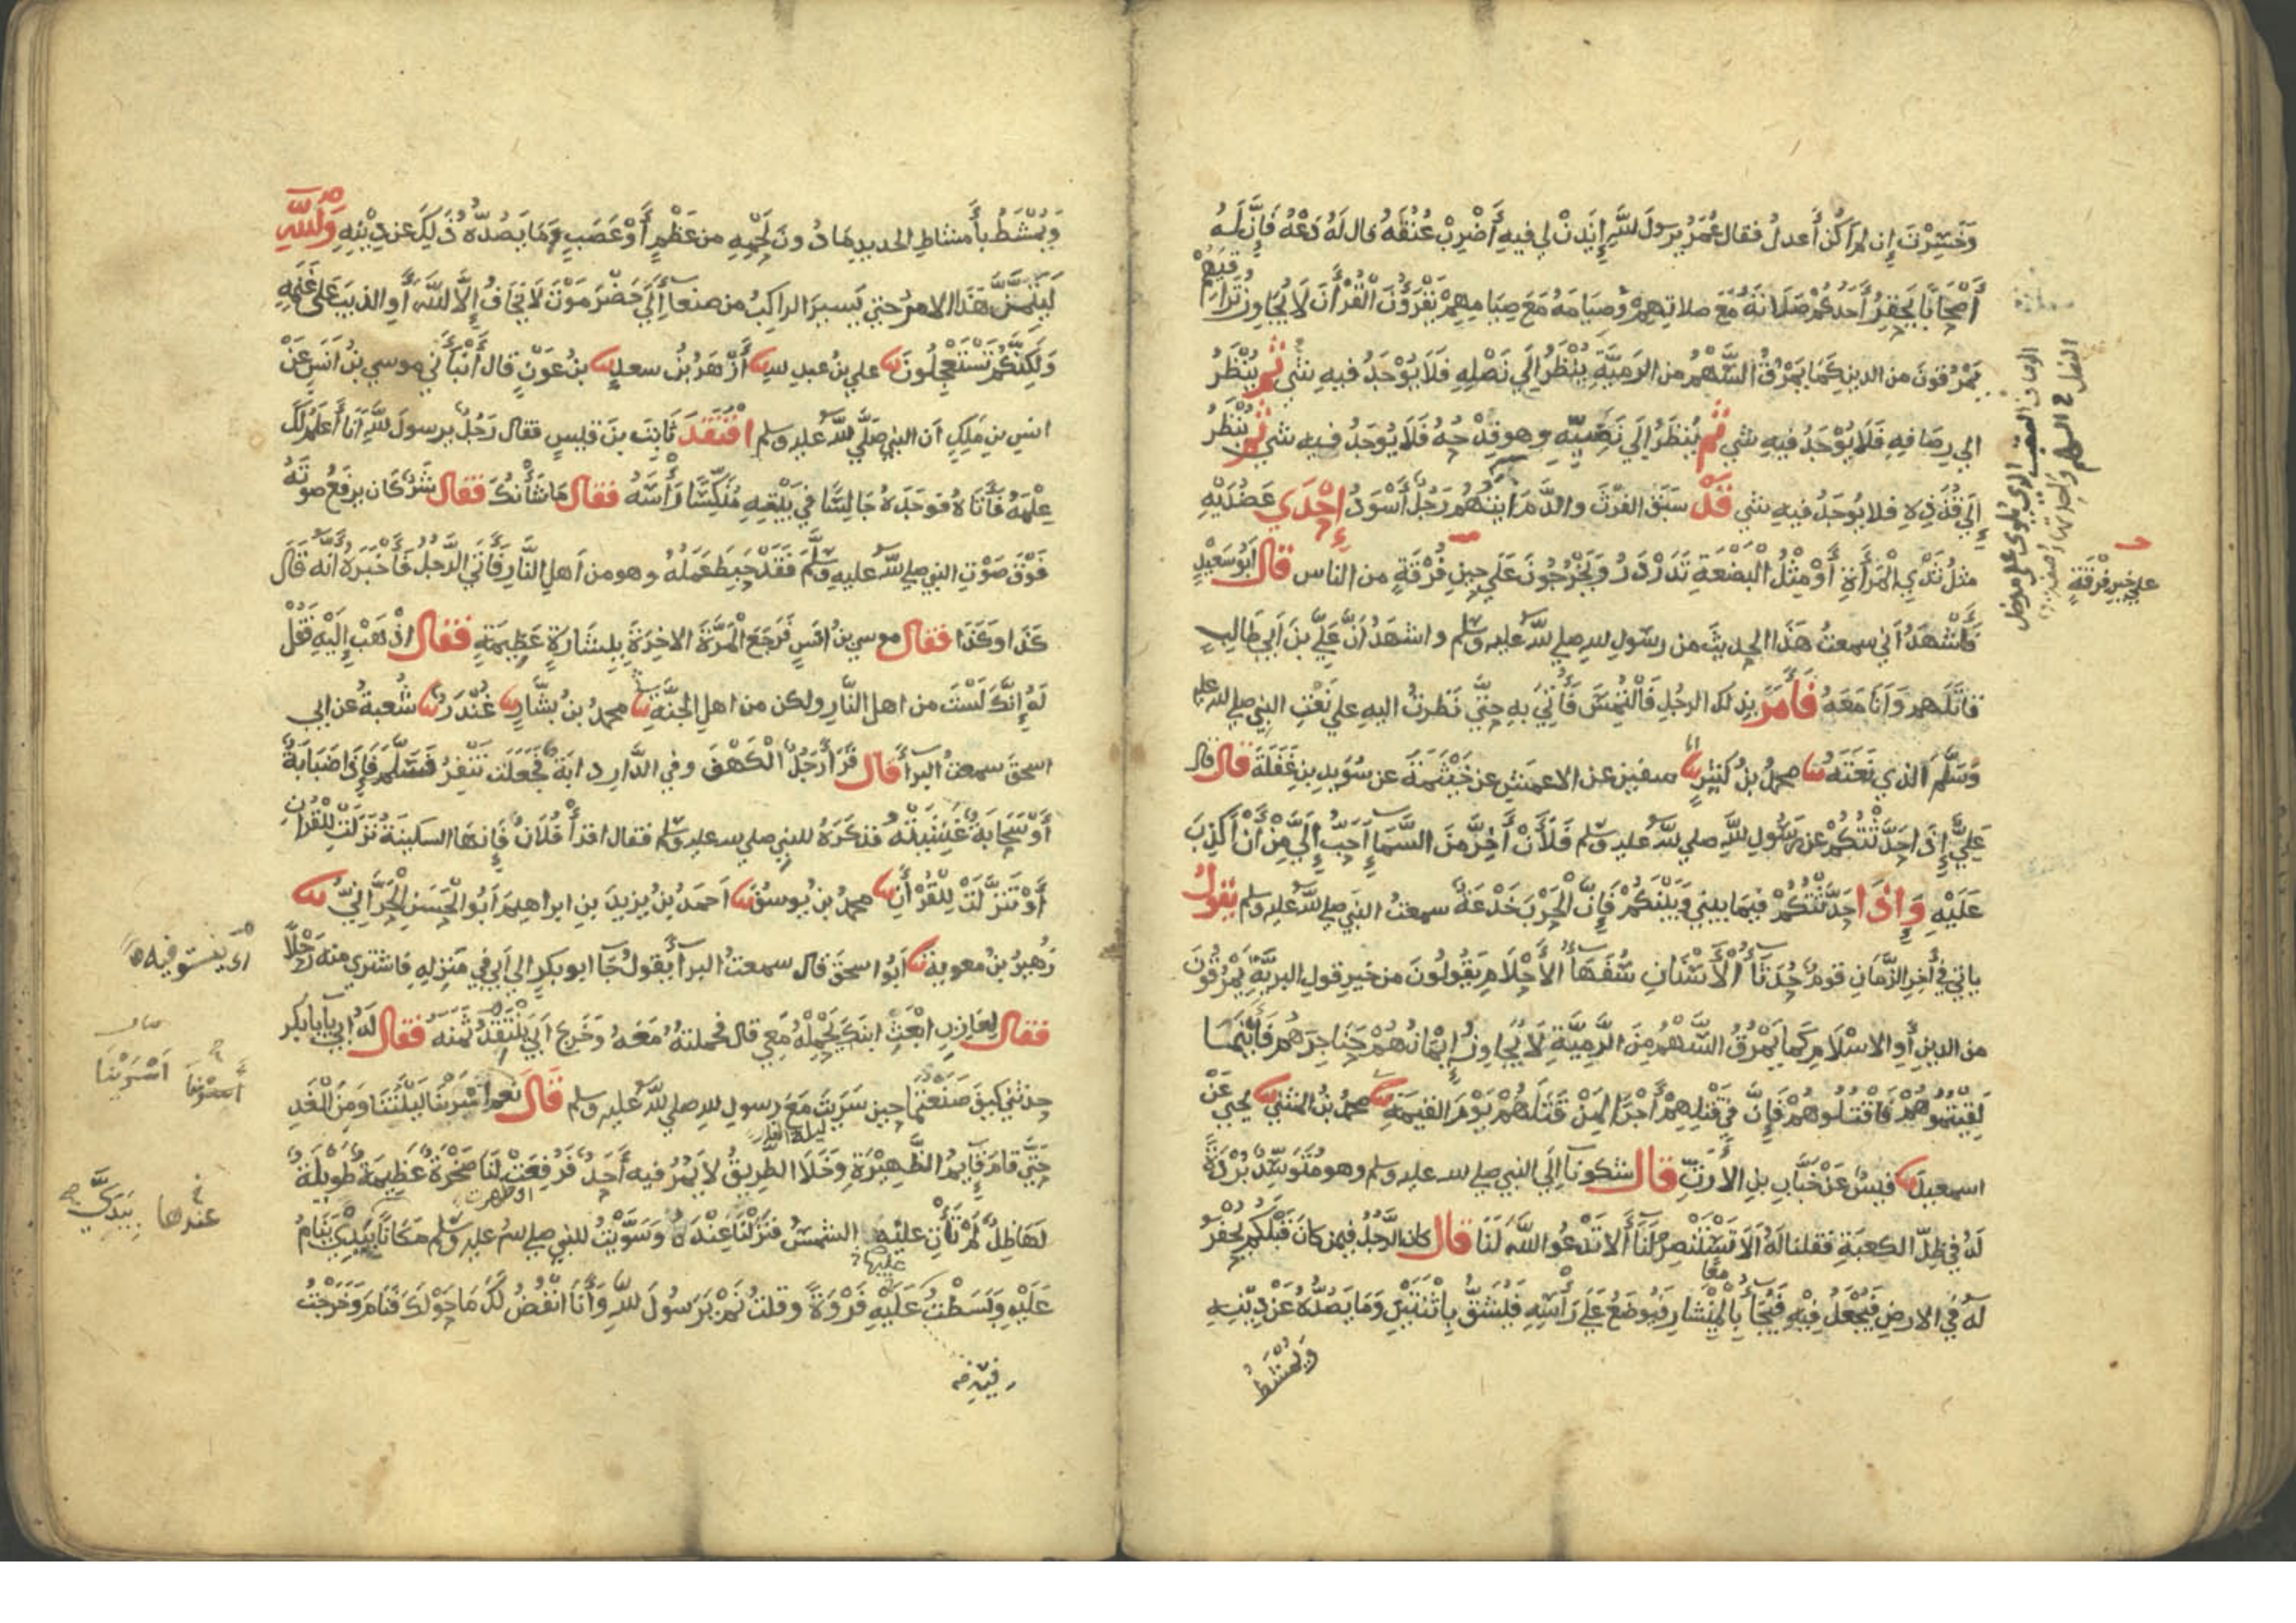 وَخَسِرْتَ إن لم أكُنْ أَعدلُ فقال عُمَرُ يرسولَ اللَّهِ إيذَنْ لي فيهِ أَضْرِبْ عُنُقَهُ قال لَهُ دَعْهُ فَإِنَّ لَهُ
أَصْحَابًا يَحْقِرُ أَحَدُكُمْ صَلَاتَهُ مَعَ صلاتِهِمْ وَصِيَامَهُ مَعَ صِيَامِهِمْ يَقْرَؤُنَ الْقُرْأَنَ لَا يُجَاوِزُ تَرَاقِيَهُمْ
يَمْرُقونَ من الدينِ كَمَا يَمْرُقُ السَّهْمُ من الرَمِيَّةِ يُنْظَرُ إلَي نَصْلِهِ فَلَا يُوْجَدُ فيهِ شي ثُمَّ يُنْظَرُ
الي رِصَافِهِ فَلَا يُوْجَدُ فيهِ شي ثُمَّ يُنظَرُ إلَي نَضِيِّهِ وهو قِدْحُهُ فَلَا يُوجَدُ فيه شي ثُمَّ يُنْظَرُ
إلَي قُذَذِهِ فلا يُوجَدُ فيهِ شي قَدْ سَبَقَ الفرْثَ والدَّمَ أيَتُهُمْ رَجُلٌ أَسْوَدُ إِحْدَي عَضُدَيْهِ
مثلُ ثَدْيِ الْمَرْأَةِ أَوْ مِثْلُ الْبَضْعَةِ تَدَرْدَرُ وَيَخْرُجُونَ عَلَي حِينِ فُرْقَةٍ من الناس قال أبُو سَعِيْدٍ
فَأَشْهَدُ أني سمعتُ هَذَا الحديثَ من رسُولِ للهِ صلي لله عليه وسلم واشهَدُ أنَّ عَلِيَّ بنَ أبي طَالِبٍ
قاتَلَهم وَأَنَا مَعَهُ فَأَمَرَ بذلك الرجُلِ فَالْتُمِسَ فَأُتِيَ بهِ حتَّي نَظرتُ اليهِ علي نَعْتِ النبي صلي لله عليه
وَسَلَّمَ الذي نَعَتَهُ ثنا محمدُ بنُ كَثِيْرٍ انا سفين عن الاعمَشِ عن خَيْثَمَةَ عن سُوَيدِ بنِ غَفَلَةَ قال قال
عَلِيٌّ إِذَا حَدَّثْتُكُمْ عن رَسُولِ للَّهِ صلي لله عليه وسلم فَلَأَنْ أَخِرَّ مِنَ السَّمَاءِ أَحَبُّ إلَيَّ مِنْ أَنْ أَكْذِبَ
عَلَيْهِ وَإِذَا حَدَّثْتُكُمْ فِيْمَا بيني وَبَيْنَكُمْ فَإِنَّ الْحَرْبَ خَدْعَةٌ سمعتُ النبي صلي لله عليه وسلم يَقُولُ
ياتي في أخِرِ الزَّمَانِ قومٌ حُدَثَاءُ الْأَسْنَانِ سُفَهَاءُ الأَحْلَامِ يَقُولُونَ من خيرِ قولِ البريَّةِ يَمْرُقُونَ
من الدينِ أَوِ الاسْلَامِ كما يَمْرُقُ السَّهْمُ مِنَ الرَّمِيَّةِ لَا يُجَاوِزُ إيْمَانُهُمْ حَنَاجِرَهُمْ فَأَيْنَمَا
لَقِيْتُمُوهُمْ فَاقْتُلُوهُمْ فَإِنَّ في قَتْلِهِمْ أَجْرًا لِمَنْ قَتَلَهُمْ يَوْمَ القيمَةِ ثنا محمدُ بنُ المثنَّي ثنا يَحْيَي عَنْ
اسمعيلَ ثنا قيسٌ عَنْ خَبَّابِ بنِ الأَرَتِّ قال شكونا إلَي النبي صلي لله عليه وسلم وهو مُتَوَسِّدٌ بُرْدَةً
لَهُ في ظِلِّ الكعبَةِ فقلنا لَهُ أَلَا تَسْتَنْصِرُ لَنَا أَلا تَدْعُوا اللَّهَ لَنَا قال كان الرَّجُلُ فيمن كانَ قَبْلَكُمْ يُحْفَرُ
لَهُ في الارضِ فَيُجْعَلُ فِيْهِ فَيُجَاءُ بِالْمِنْشَارِ فَيُوضَعُ عَلَي رَأْسِهِ فَيُشَقُّ بِاثْنَتَيْنِ وَمَا يَصُدُّهُ عَنْ دِيْنِهِ
معًا
وَيُمْشَطُ
علي خيرِ فرْقَةٍ
وَيُمْشَطُ بأَمشاطِ الحديدِ مَا دُونَ لَحْمِهِ من عَظْمٍ أَوْ عَصَبٍ وَمَا يَصُدُّهُ ذَلِكَ عن دِيْنِهِ وَللَّهِ
لَيُتِمَّنَّ هَذَا الامرُ حتي يَسيرَ الراكِبُ من صنعاءَ إلَي حَضْرَمَوْتَ لَا يَخَافُ إلَّا للَّهَ أَوِ الذيبَ علي غَنَمِهِ
وَلَكِنَّكُمْ تَسْتَعْجِلُونَ ثنا علي بن عبد لله ثنا أَزْهَرُ بْنُ سعدٍ ثنا بنُ عَوْنٍ قال أَنْبَأَنِي موسي بنُ أنَسٍ عَنْ
انسِ بنِ مَلِكٍ أن النبي صَلَّي لله عليه وسلم افْتَقَدَ ثَابِتَ بنَ قيسٍ فقال رَجُلٌ يرسولَ للَّهِ أَنَا أَعْلَمُ لَكَ
عِلْمَهُ فَأَتَاهُ فوَجَدَهُ جَالِسًا في بَيْتِهِ مُنَكِّسًا رَأْسَهُ فقال مَا شَأْنُكَ فقال شَرٌّ كان يرفَعُ صوتَهُ
فَوْقَ صَوْتِ النبي صلي لله عليه وسلم فَقَدْ حَبِطَ عَمَلُهُ وهو من أهلِ النَّارِ فَأَتَي الرَّجُلُ فَأَخْبَرَهُ أَنَّهُ قَالَ
كَذَا وكَذَا فقال موسي بنُ أنسٍ فَرَجَعَ الْمَرَّةَ الأخِرَةَ بِبِشَارَةٍ عَظِيمَةٍ فقال اذْهَبْ إلَيْهِ فَقُلْ
لَهُ إنَّكَ لَسْتَ من اهلِ النَّارِ ولكن من اهلِ الجنَّةِ ثنا محمدُ بنُ بَشَّارٍ ثنا غُنْدَرٌ ثنا شُعبةُ عن ابي
اسحقَ سمعتُ البراءَ قال قَرَأَ رَجُلٌ الْكَهْفَ وفي الدَّارِ دابَةٌ فَجَعَلَت تَنْفِرُ فَسَلَّمَ فَإِذَا ضَبَابَةٌ
أَوْ سَحَابَةٌ غَشِيَتْهُ فذكَرَهُ للنبي صلي لله عليه وسلم فقال اقرَأْ فُلَانُ فَإِنهَا السكينَةُ نَزَلَتْ لِلْقُرْأَنِ
أَوْ تَنَزَّلَتْ لِلْقُرْأَنِ ثنا محمدُ بن يُوسُفَ ثنا أحمَدُ بْنُ يزِيدَ بنِ ابراهيمَ أَبُو الْحَسَنِ الْحَرَّانِيُّ ثنا
زُهيرُ بنُ معوية ثنا أَبُو اسحقَ قال سمعتُ البراءَ يقولُ جَاءَ ابو بكرٍ الي أبي في مَنْزِلِهِ فاشتري منه رَحْلًا
فقال لِعَازِبٍ ابْعَثِ ابنَكَ يَحْمِلْهُ مَعِي قال فحملتهُ مَعَهُ وَخَرَجَ أبي يَنْتَقِدُ ثَمَنَهُ فقال لَهُ ابي يأبا بكر
حدثني كيفَ صَنَعْتُمَا حينَ سَرَيْتَ مَعَ رسولِ للهِ صلي لله عليه وسلم قَالَ نَعم اسْرَيْنَا لَيْلَتَنَا وَمِنَ الْغَدِ
حتَّي قامَ قَايمُ الظَّهيرَةِ وَخَلَا الطريقُ لا يَمُرُّ فيهِ أَحَدٌ فَرُفِعَتْ لَنَا صَخْرَةٌ عَظِيمَةٌ طَوِيْلَةٌ
لَهَا ظِلٌّ لَمْ تَأْتِ عليْهِ الشمسُ فنَزَلْنَا عِنْدَهُ وَسَوَّيْتُ للنبي صلي لله عليه وسلم مَكَانًا بِيَدِيْ يَنَامُ
عليها
عَلَيْهِ وبَسَطْتُ عَلَيْهِ فَرْوَةً وقلتُ نَمْ يَرَسُولَ للَّهِ وَأَنَا أَنْفُضُ لَكَ مَا حَوْلَكَ فَنَامَ وَخَرَجْتُ
أي يستوفيه
أَسْرَيْنَا
عندها
بِيَدَيَّ